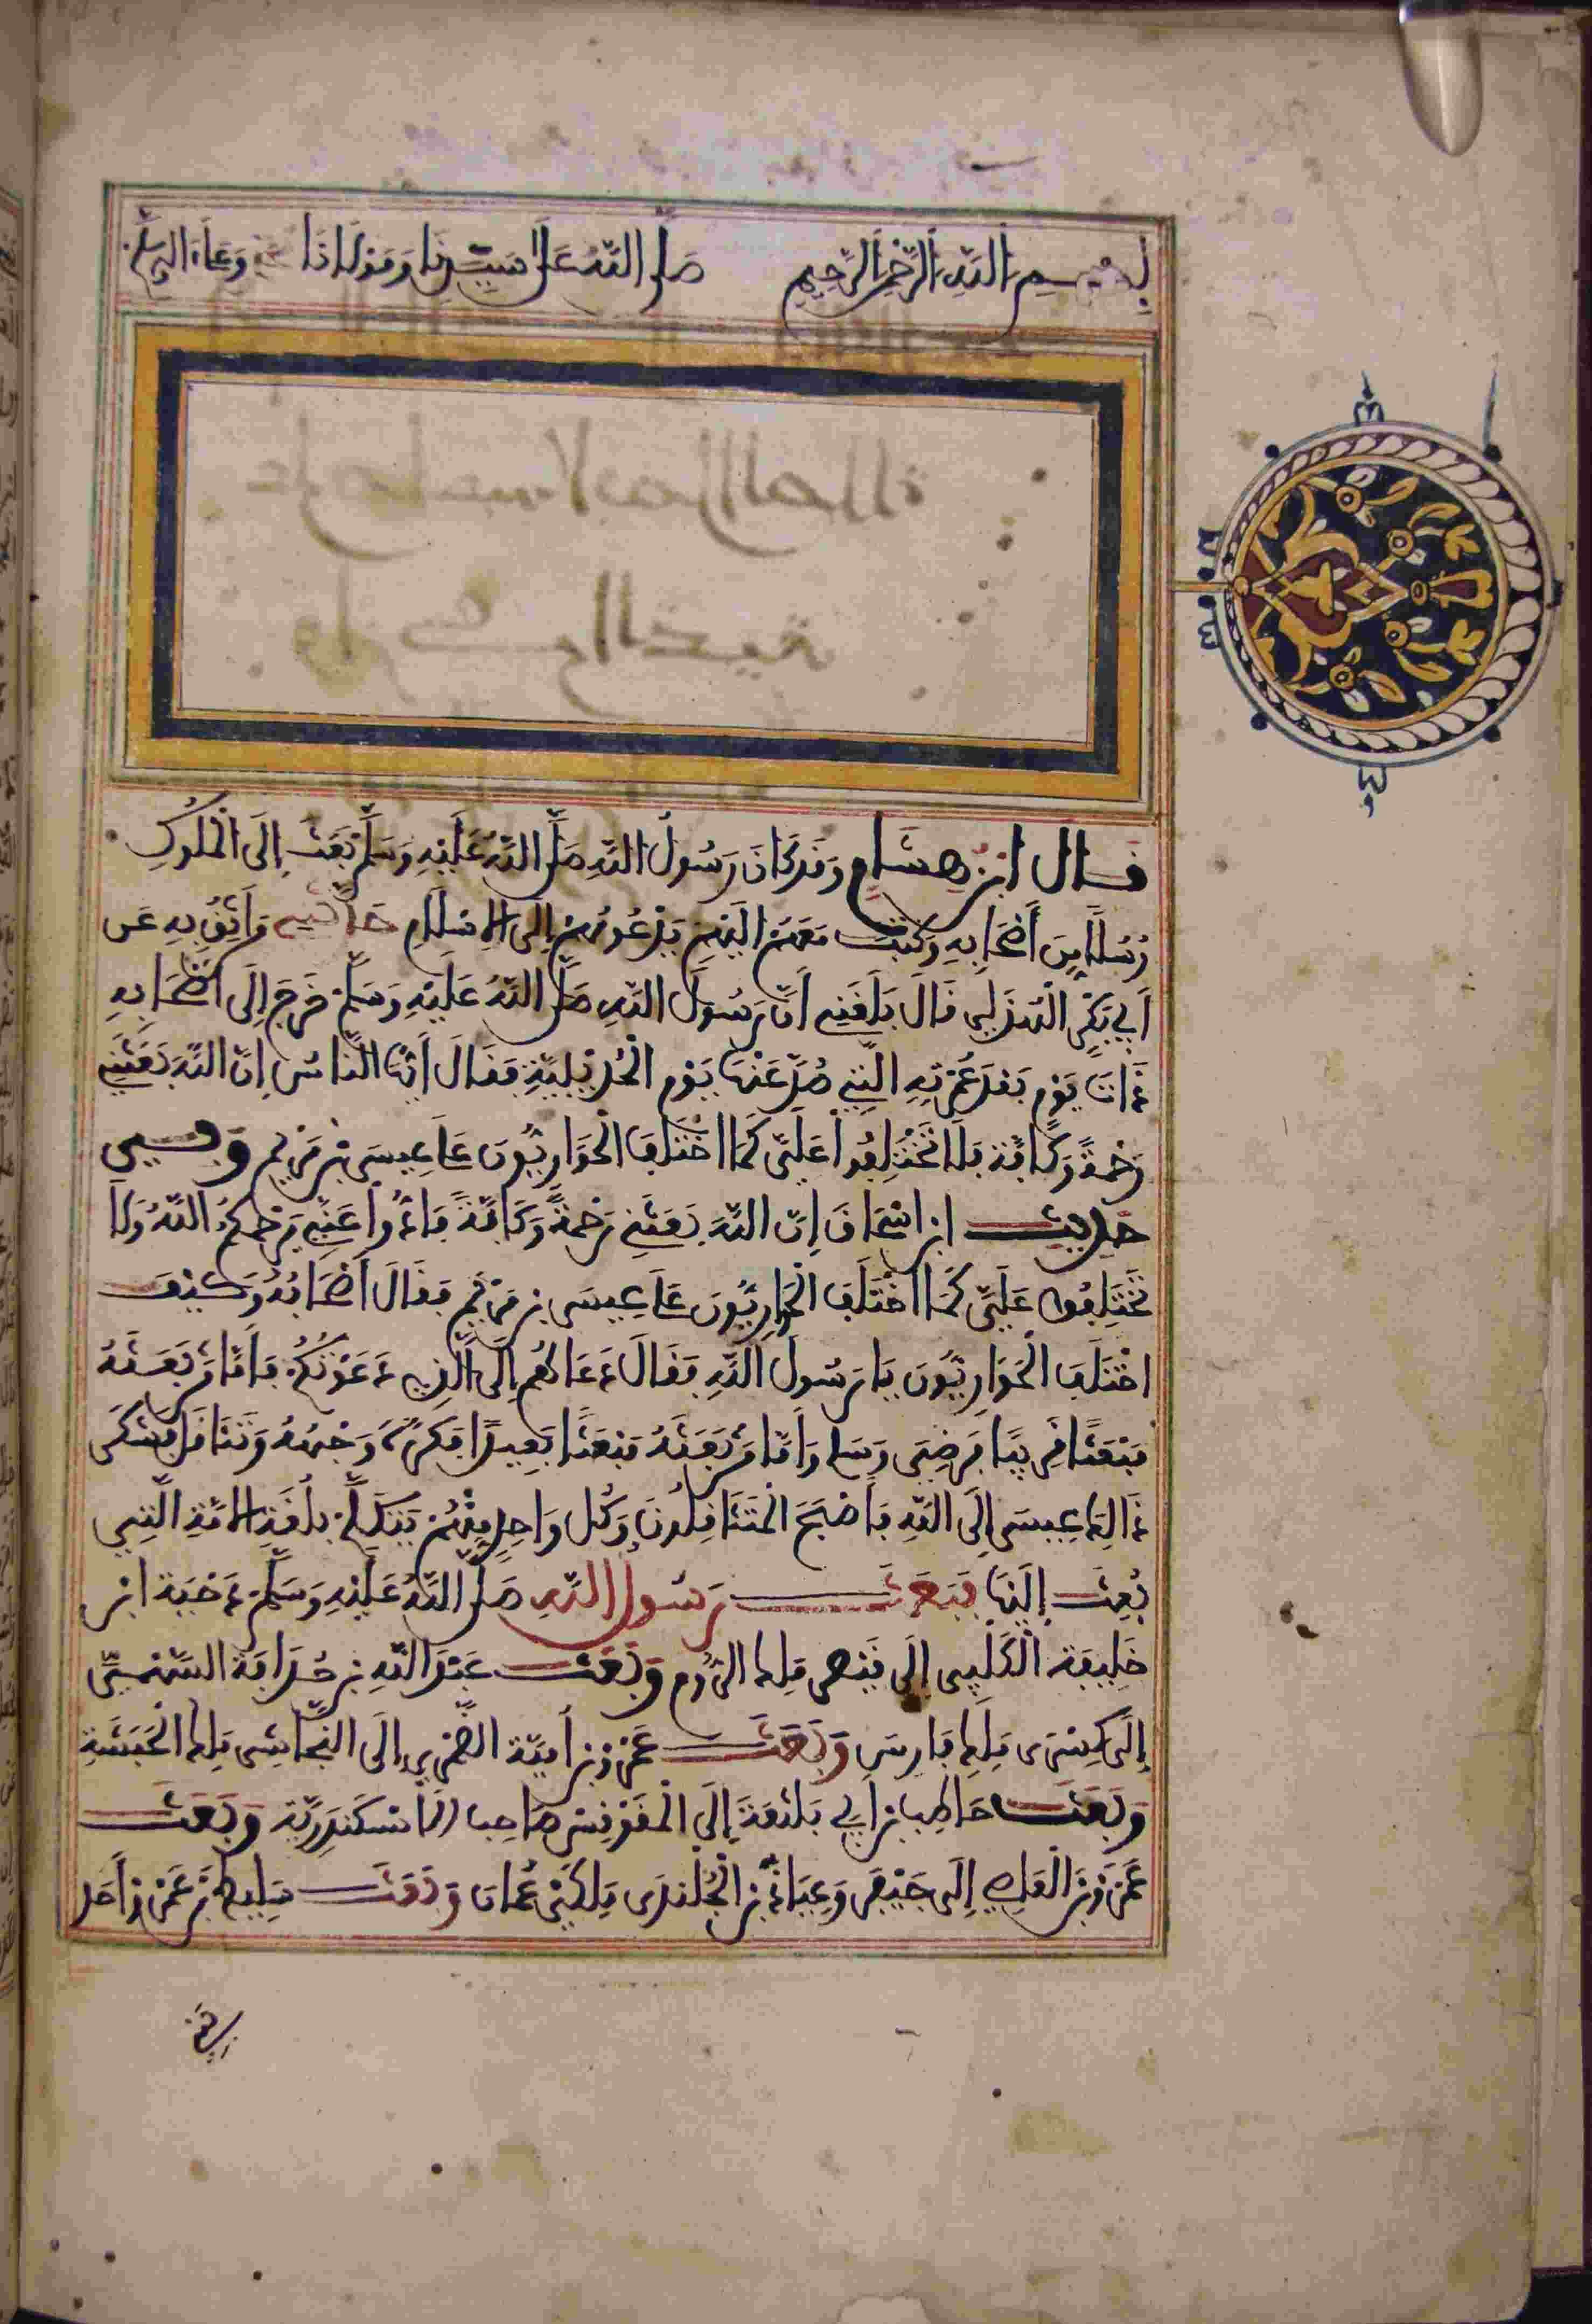 بسم الله الرحمن الرحيم صلى الله على سيدنا ومولانا وعلى اله
قال ابن هشام وقد كان رسول الله صلى الله عليه وسلم بعث إلى الملوك
رسلا من أصحابه وكتب معهم إليهم يدعوهم إلى الإسلام من أثق به عن
أبي بكر الهذلي قال بلغني أن رسول الله صلى الله عليه وسلم خرج إلى أصحابه
ذات يوم بعد عمرته التي صد عنها يوم الحديبية فقال أيها الناس إن الله بعثني
رحمة وكافة فلا تختلفوا علي كما اختلف الحواريون على عيسى بن مريم وفي
حديث ابن اسحاق إن الله بعثني رحمة وكافة فأدوا عني يرحمكم الله ولا
تختلفوا علي كما اختلف الحواريون على عيسى بن مريم فقال أصحابه وكيف
اختلف الحواريون يا رسول الله فقال دعاهم إلى الذي دعوتكم فأما من بعثه
مبعثا قريبا فرضي وسلم وأما من بعثه مبعثا بعيدا فكره وجهه وتثاقل فشكى
ذالك عيسى إلى الله فأصبح المتثاقلون وكل واحد منهم يتكلم بلغة الأمة التي
بعث إليها فبعث رسول الله صلى الله عليه وسلم دحية ابن
خليفة الكلبي إلى قيصر ملك الروم وبعث عبد الله بن حذافة السهمي
إلى كسرى ملك فارس وبعث عمرو بن أمية الضمري إلى النجاشي ملك الحبشة
وبعث حاطب بن أبي بلتعة إلى المقوقس صاحب الأسكندرية وبعث
عمرو بن العاصي إلى جيفر وعياذ بن الجلندى ملكي عمان وبعث سليط بن عمرو أحد
بني